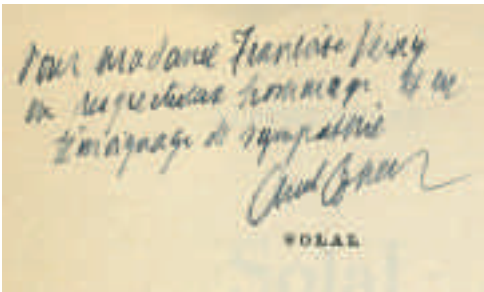 Pour madame Françoise Verny
en respectueux hommage et en
témoignage de sympathie
Albert Cohen
SOLAL
Solal